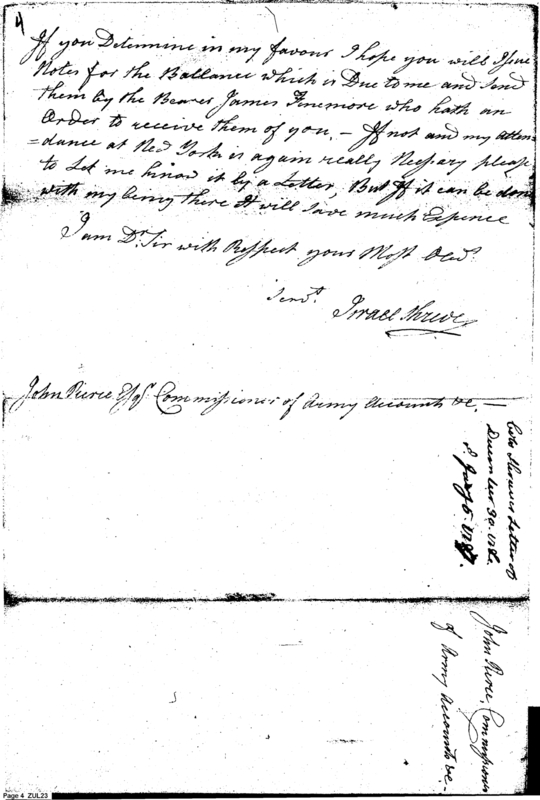 4
If you Determine in my favour I hope you will Issue
Notes for the Ballance which is Due to me and Send
them by the Bearer James Finemore who hath an
Order to receive them of you, – If not and my atten=
=dance at New York is again really Nessary please
to Let me know it by a Letter, But If it can be done
with my being there It will save much Expence
I am Dr. Sir with Respect your Most Obed.
Servt.
Israel Shreve
John Pierce Esqr. Commissioner of Army Accounts &c. –
Colo Shreve's Letter of
December 30. 1786.
& Jany 5. 1787.
John Pierce, Commissioner
of Army Accounts &c. –
Page 4 ZUL23